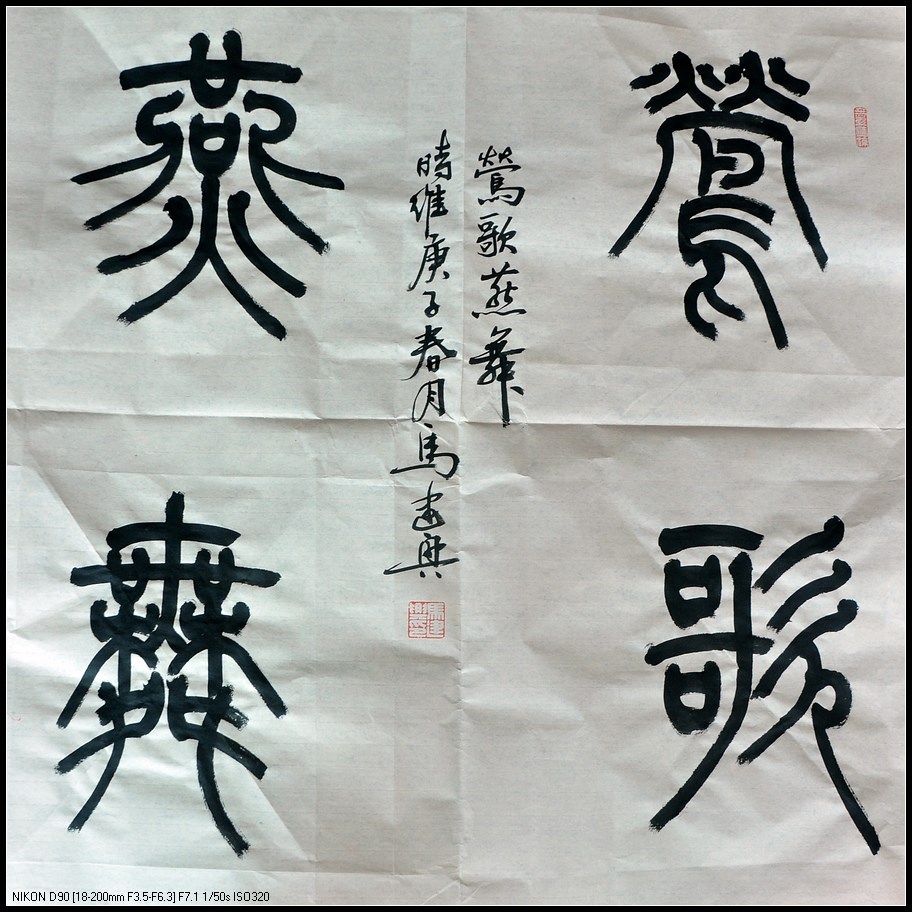 鶯
歌
燕
舞
鶯歌燕舞
時維庚子春月馬建興
NIKON D90 [18-200mm F3.5-F6.3] F7.1 1/50s ISO320